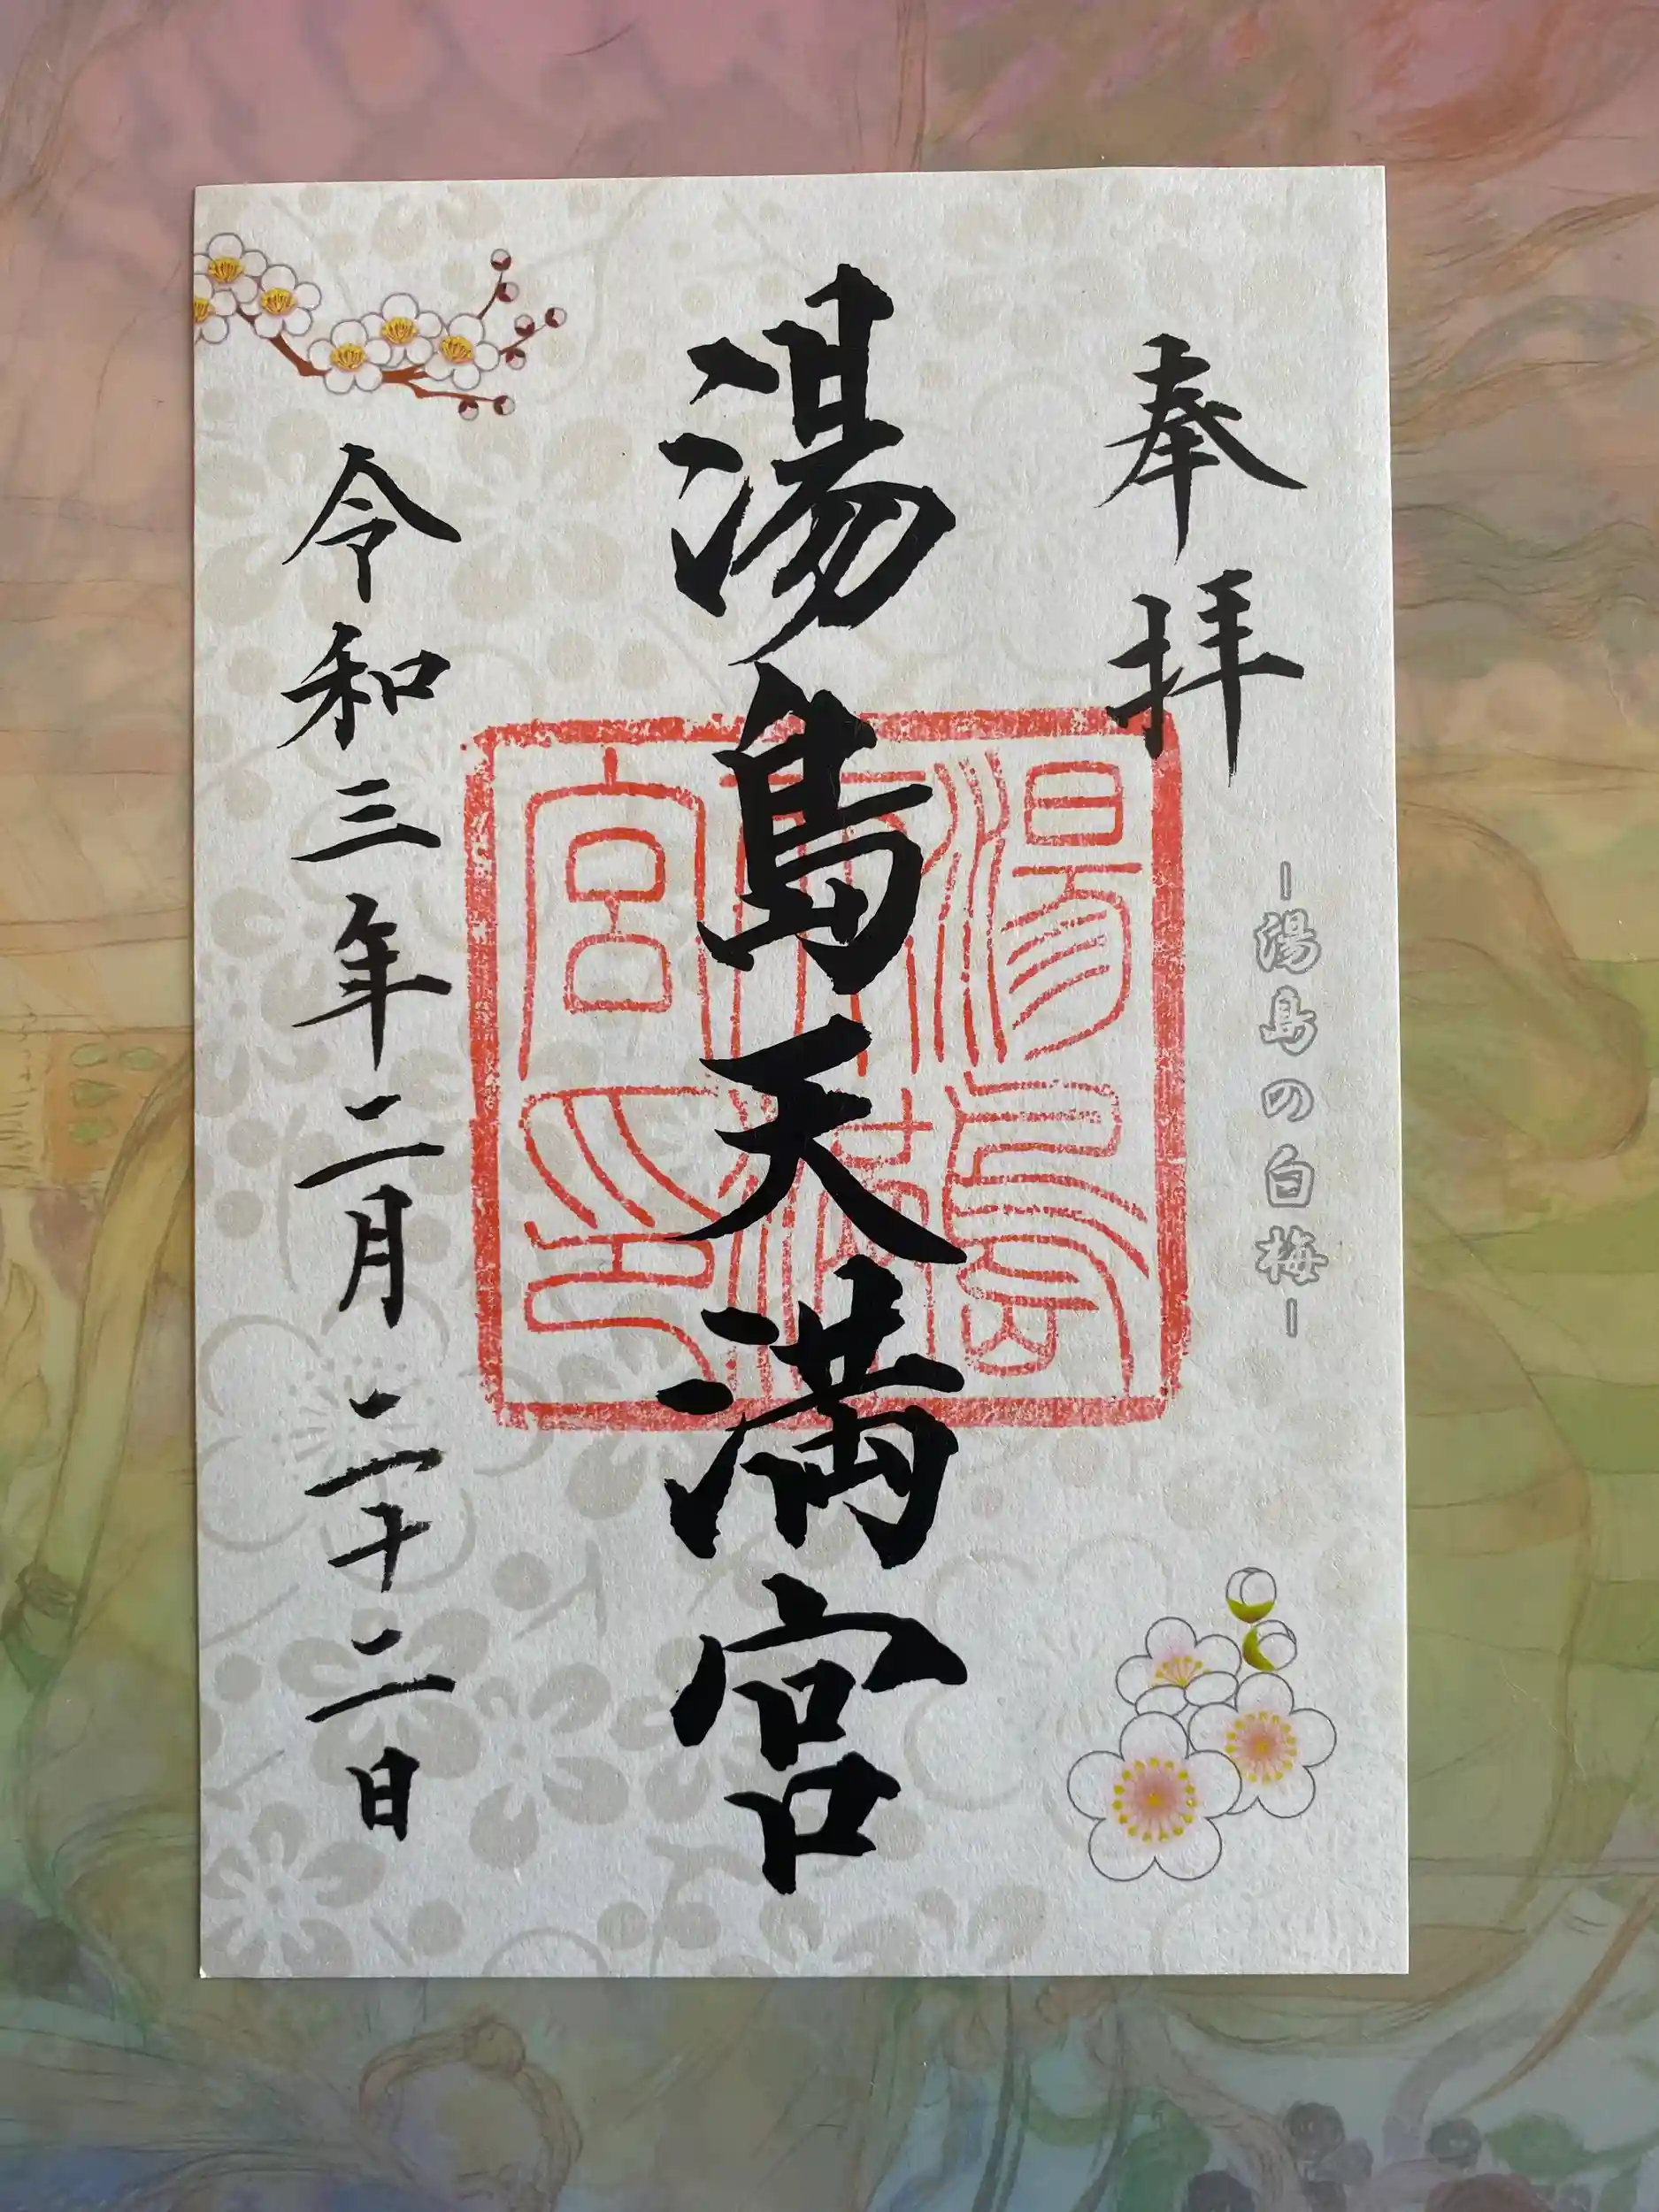 奉拝
-湯島の白梅-
湯島天満宮
湯島
天満
宮印
令和三年二月二十二日